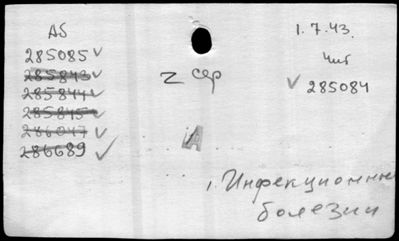 AS
285085
285843
285844
285845
286047
286689
Z сер
A
1.7.43.
чит
285084
1. Инфекционные
болезни